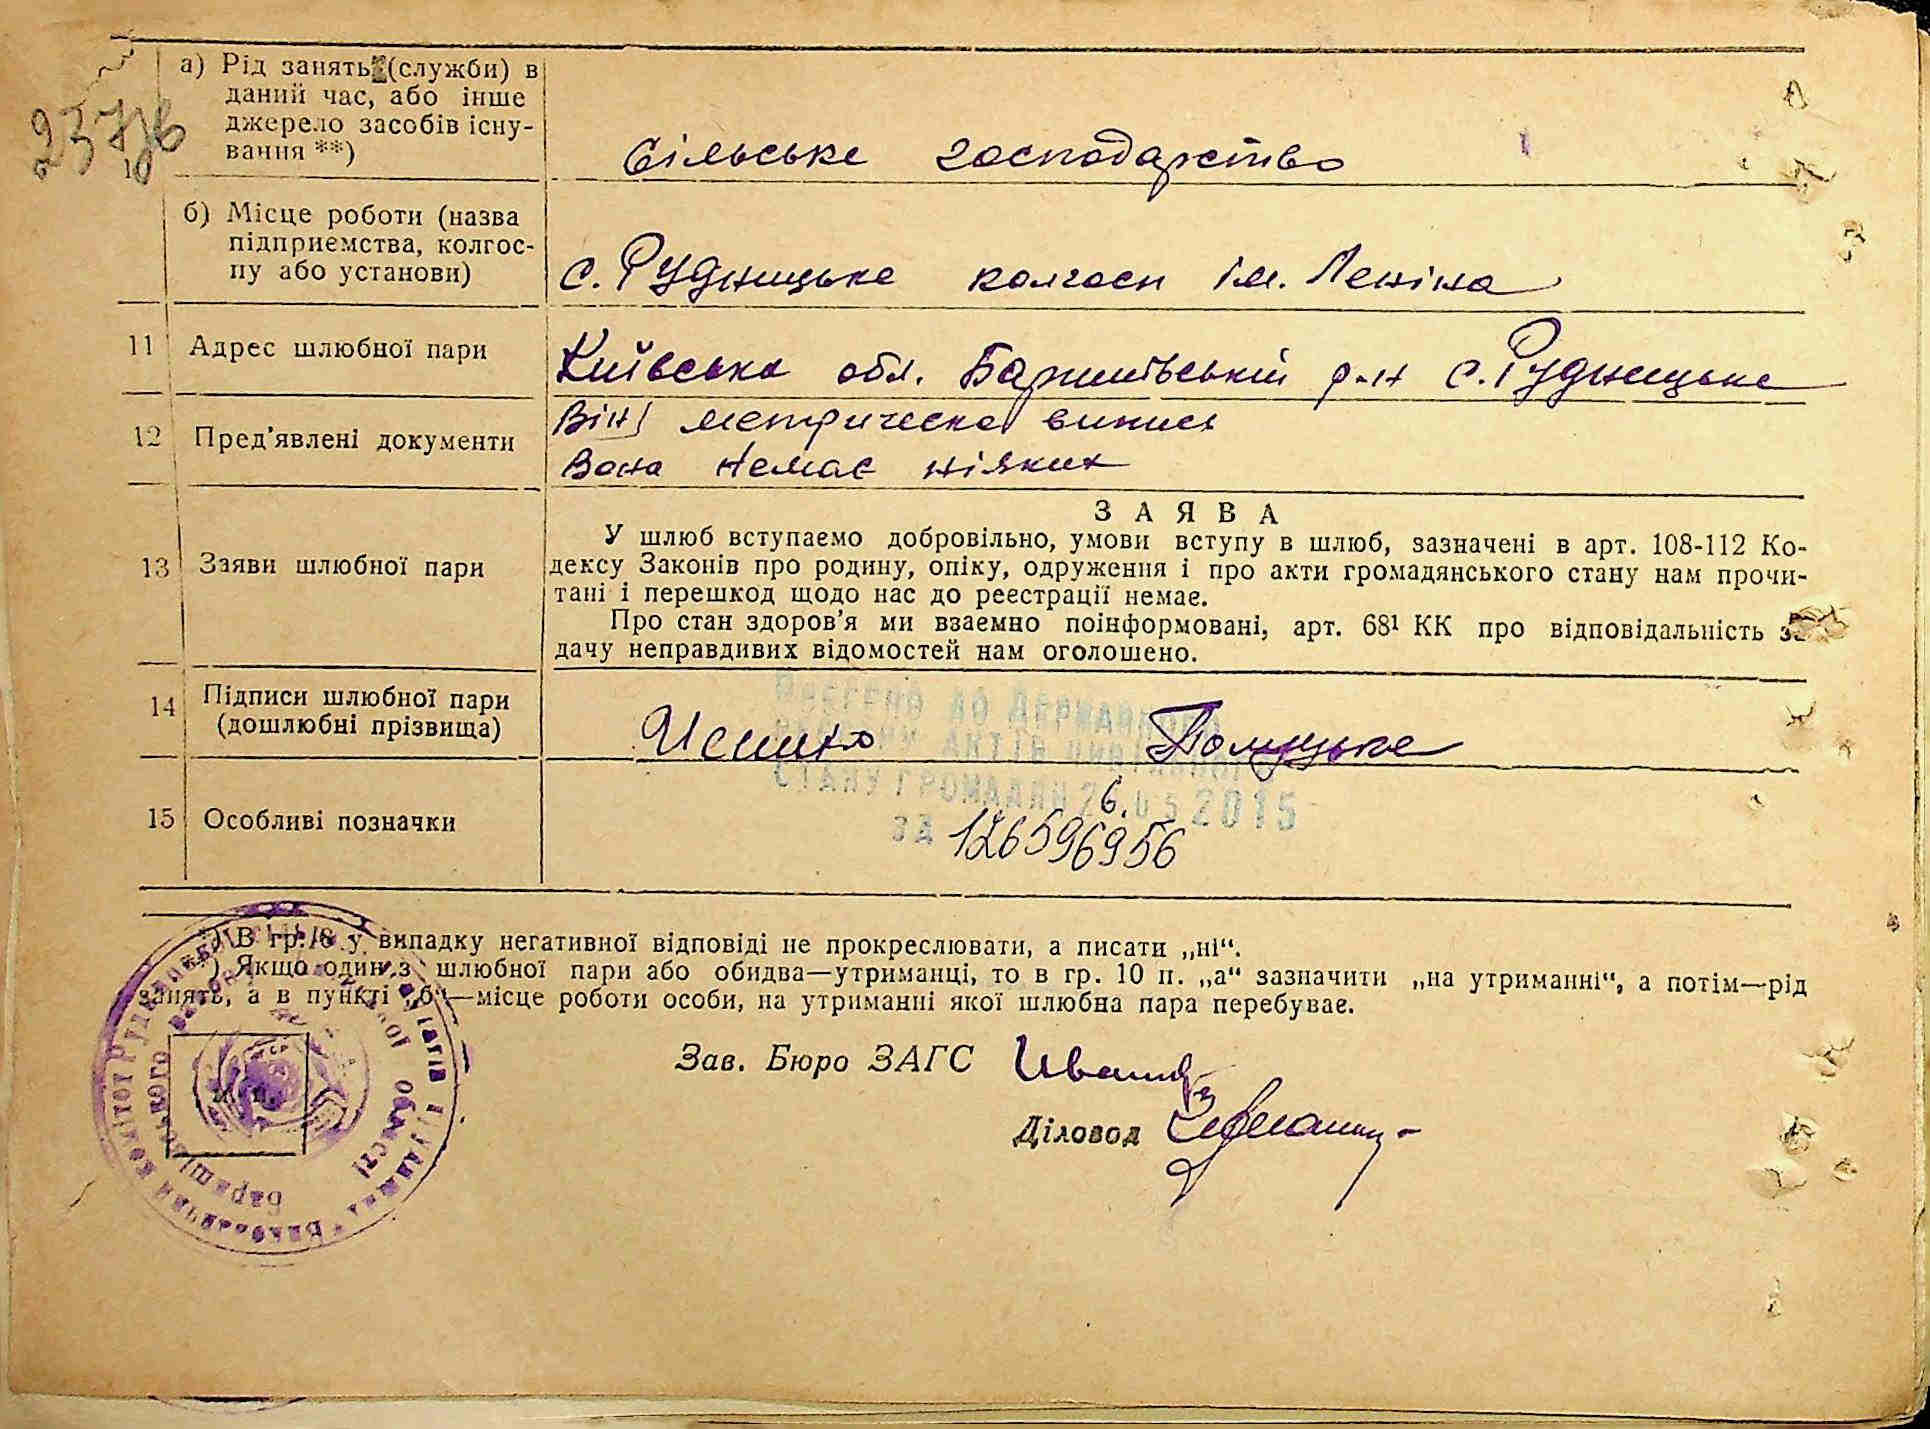 а) Рід занять (служби) в
даний час, або інше
джерело засобів існу-
вання **)
10
Сільське господарство
б) Місце роботи (назва
підприємства, колгос-
пу або установи)
с. Рудницьке колгосп ім. Леніна
11 Адрес шлюбної пари
Київська обл. Баришівській р-н с. Рудницьке
12 Пред'явлені документи
Він метрическа випись
Вона немає ніяких
13 Заяви шлюбної пари
ЗАЯВА
У шлюб вступаємо добровільно, умови вступу в шлюб, зазначені в арт. 108-112 Ко-
дексу Законів про родину, опіку, одруження і про акти громадянського стану нам прочи-
тані і перешкод щодо нас до реєстрації немає.
Про стан здоров'я ми взаємно поінформовані, арт. 68¹ КК про відповідальність за
дачу неправдивих відомостей нам оголошено.
14 Підписи шлюбної пари
(дошлюбні прізвища)
ВНЕСЕНО ДО ДЕРЖАВНОГО
РЕЄСТРУ АКТІВ ЦИВІЛЬНОГО
СТАНУ ГРОМАДЯН 26.05 2015
ЗА 126596956
15 Особливі позначки
*) В гр. 8 у випадку негативної відповіді не прокреслювати, а писати „ні“.
**) Якщо один з шлюбної пари або обидва—утриманці, то в гр. 10 п. „а“ зазначити „на утриманні“, а потім—рід
занять, а в пункті „б“—місце роботи особи, на утриманні якої шлюбна пара перебуває.
Зав. Бюро ЗАГС
Діловод